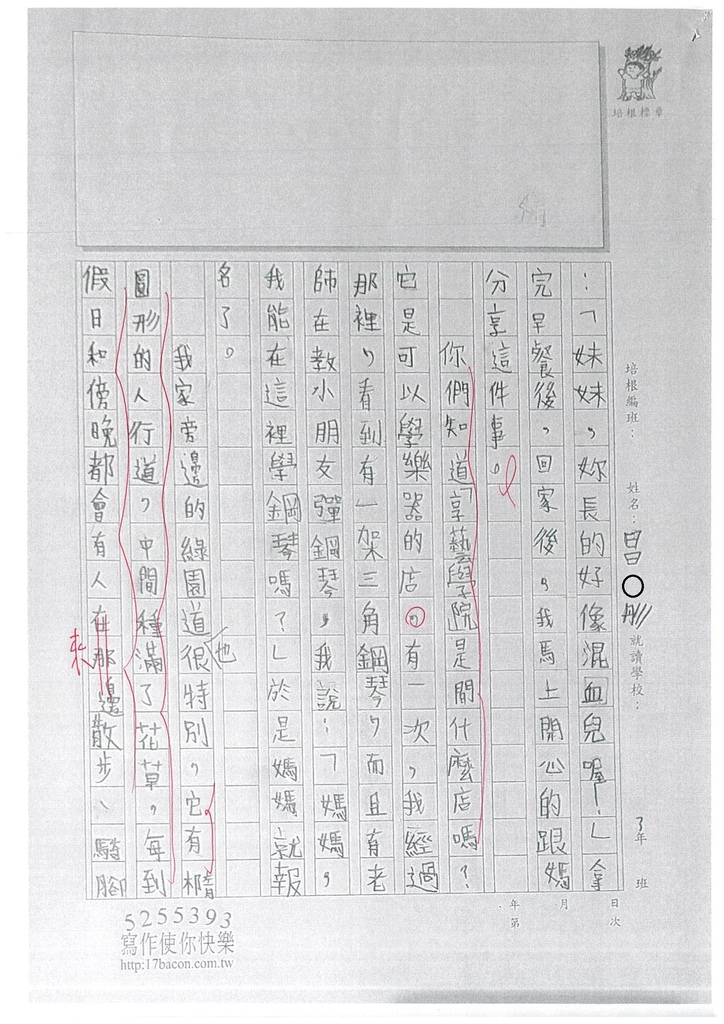 ：「妹妹，妳長的好像混血兒喔！」拿
完早餐後，回家後，我馬上開心的跟媽
分享這件事。
你們知道「享藝學院是間什麼店嗎？
它是可以學樂器的店。有一次，我經過
那裡，看到有一架三角鋼琴，而且有老
師在教小朋友彈鋼琴，我說：「媽媽，
我能在這裡學鋼琴嗎？」於是媽媽就報
名了。
我家旁邊的綠園道也很特別，它有橢
圓形的人行道，中間種滿了花草，每到
假日和傍晚都會有人在那邊散步、騎腳
來
培根標章
培根編班：
姓名：昌〇彤
就讀學校：
3年 班
年 月 日
第 次
5255393
寫作使你快樂
http:17bacon.com.tw